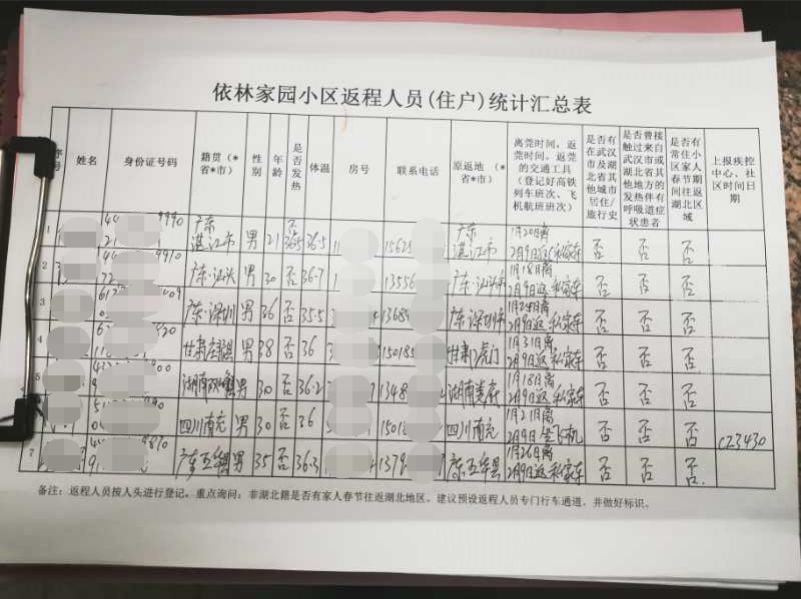 依林家园小区返程人员(住户)统计汇总表
序号 姓名 身份证号码 籍贯(*省*市) 性别 年龄 是否发热 体温 房号 联系电话 原返地(*省*市) 离莞时间，返莞时间，返莞的交通工具(登记好高铁列车班次、飞机航班班次) 是否有在武汉市及湖北省其他城市居住/旅行史 是否曾接触过来自武汉市或湖北省其他地方的发热伴有呼吸道症状患者 是否有常住小区家人春节期间往返湖北区域 上报疾控中心、社区时间日期
1 44 9990 21 广东湛江市 男 21 否 36.5 36.5 15625 广东湛江市 1月20日离 2月9日返 私家车 否 否 否
2 44 9910 22 广东汕头 男 30 否 36.7 13556 广东汕头 1月18日离 2月9日返 私家车 否 否 否
3 广东深圳 男 36 否 35.5 1368 广东深圳 1月24日离 2月9日返 私家车 否 否 否
甘肃 男 38 否 36 150185 甘肃 虎门 1月31日离 2月9日返 私家车 否 否 否
湖南双峰 男 30 否 36.2 1348 湖南娄底 1月18日离 2月9日返 私家车 否 否 否
四川南充 男 30 否 36 1501 四川南充 1月21日离 2月9日 坐飞机 否 否 否 CZ3430
7 广东五华县 男 35 否 36.3 1379 广东五华县 1月26日离 2月9日返 私家车 否 否 否
备注：返程人员按人头进行登记。重点询问：非湖北籍是否有家人春节往返湖北地区。建议预设返程人员专门行车通道，并做好标识。